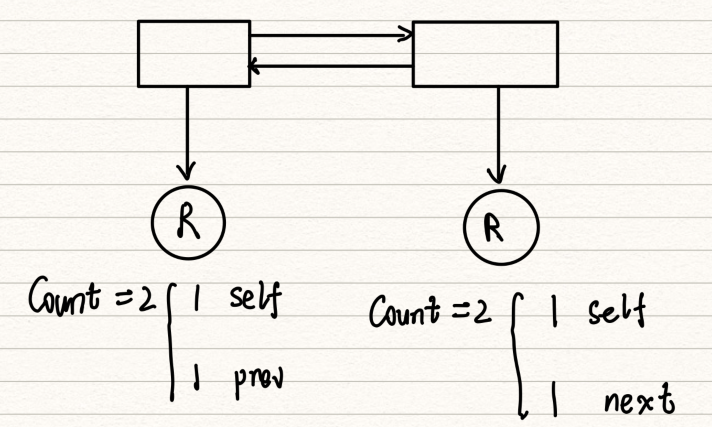 R
R
Count = 2 { 1 self
1 prev
Count = 2 { 1 self
1 next